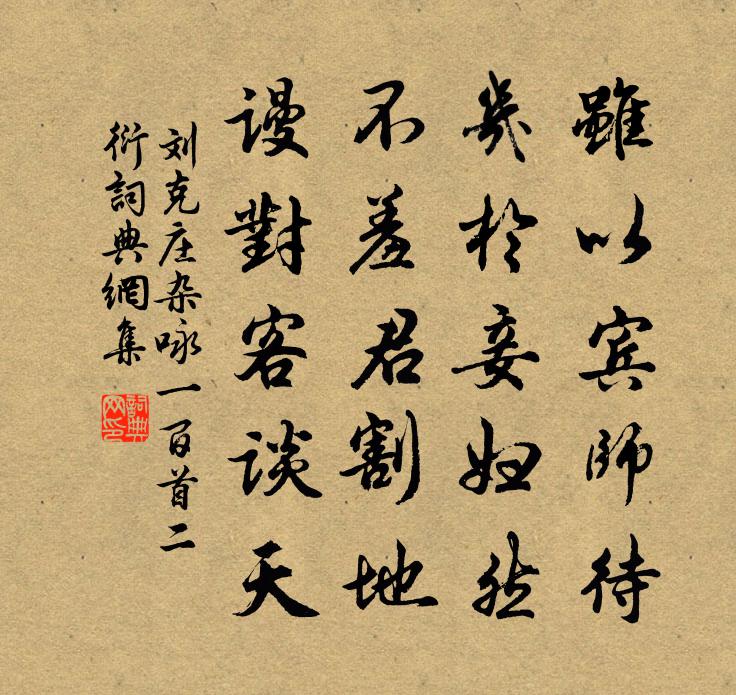 雖以賓師待
幾於妾婦然
不羞君割地
謾對客談天
刘克庄杂咏一百首二
衍詞典網集
詞典网印